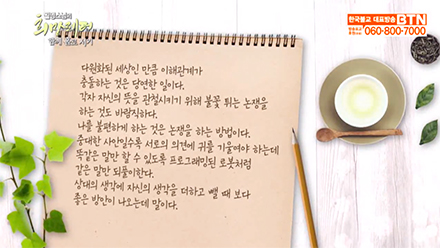 한국불교 대표방송 BTN
060-800-7000
희망편지
다원화된 세상인 만큼 이해관계가
충돌하는 것은 당연한 일이다.
각자 자신의 뜻을 관철시키기 위해 불꽃 튀는 논쟁을
하는 것도 바람직하다.
나를 불편하게 하는 것은 논쟁을 하는 방법이다.
중대한 사안일수록 서로의 의견에 귀를 기울여야 하는데
똑같은 말만 할 수 있도록 프로그래밍된 로봇처럼
같은 말만 되풀이한다.
상대의 생각에 자신의 생각을 더하고 뺄 때 보다
좋은 방안이 나오는데 말이다.